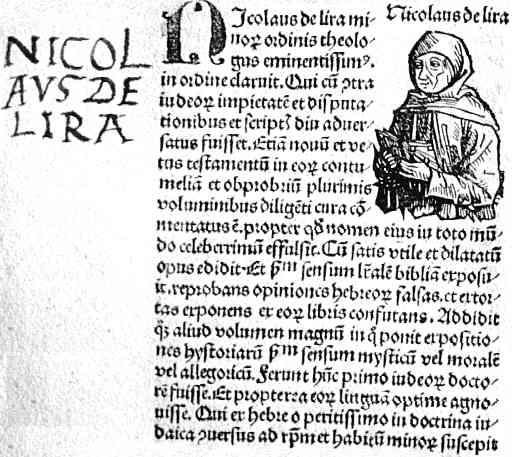 NICOL
AVS DE
LIRA
Nicolaus de lira
NIcolaus de lira mi-
noꝝ ordinis theolo-
gus eminentissimꝰ.
in ordine claruit. Qui cũ ↄtra
iudeoꝝ impietatẽ et disputa-
tionibus et scriptꝭ diu aduer-
satus fuisset. Etiã nouũ et ve-
tus testamentũ in eoꝝ contu-
meliã et obprobriũ plurimis
voluminibus diligẽti cura cõ-
mentatus ẽ. propter qd̃ nomen eius in toto mũ-
do celeberrimũ effulsit. Cũ satis vtile et dilatatũ
opus edidit. Et ṗᵐ sensum lr̃alẽ bibliã exposu-
it. reprobans opiniones hebreoꝝ falsas. et extor-
tas exponens ex eoꝝ libris confutans. Addidit
q̃ꝫ aliud volumen magnũ in q̊ ponit expositio-
nes hystoriarũ ṗᵐ sensum mysticũ vel moralẽ
vel allegoricũ. Ferunt hũc primo iudeoꝝ docto-
rẽ fuisse. Et propterea eoꝝ linguã optime agno-
uisse. Qui ex hebreo peritissimo in doctrina iu-
daica ↄuersus ad xp̃m et habitũ minoꝝ suscepit